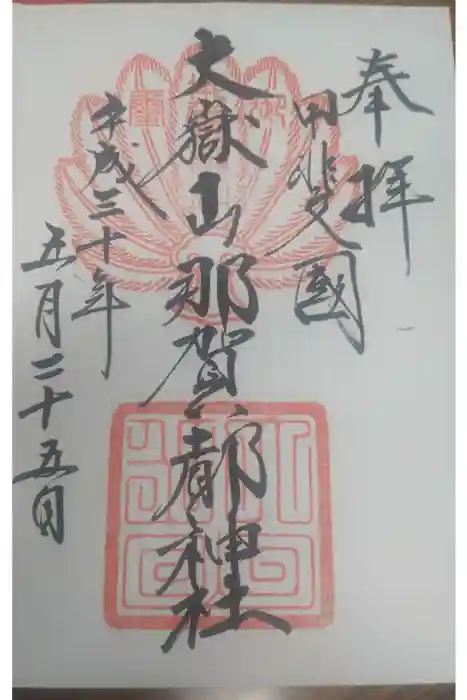 奉拝
甲斐國
大嶽山那賀都神社
平成三十年
五月二十五日